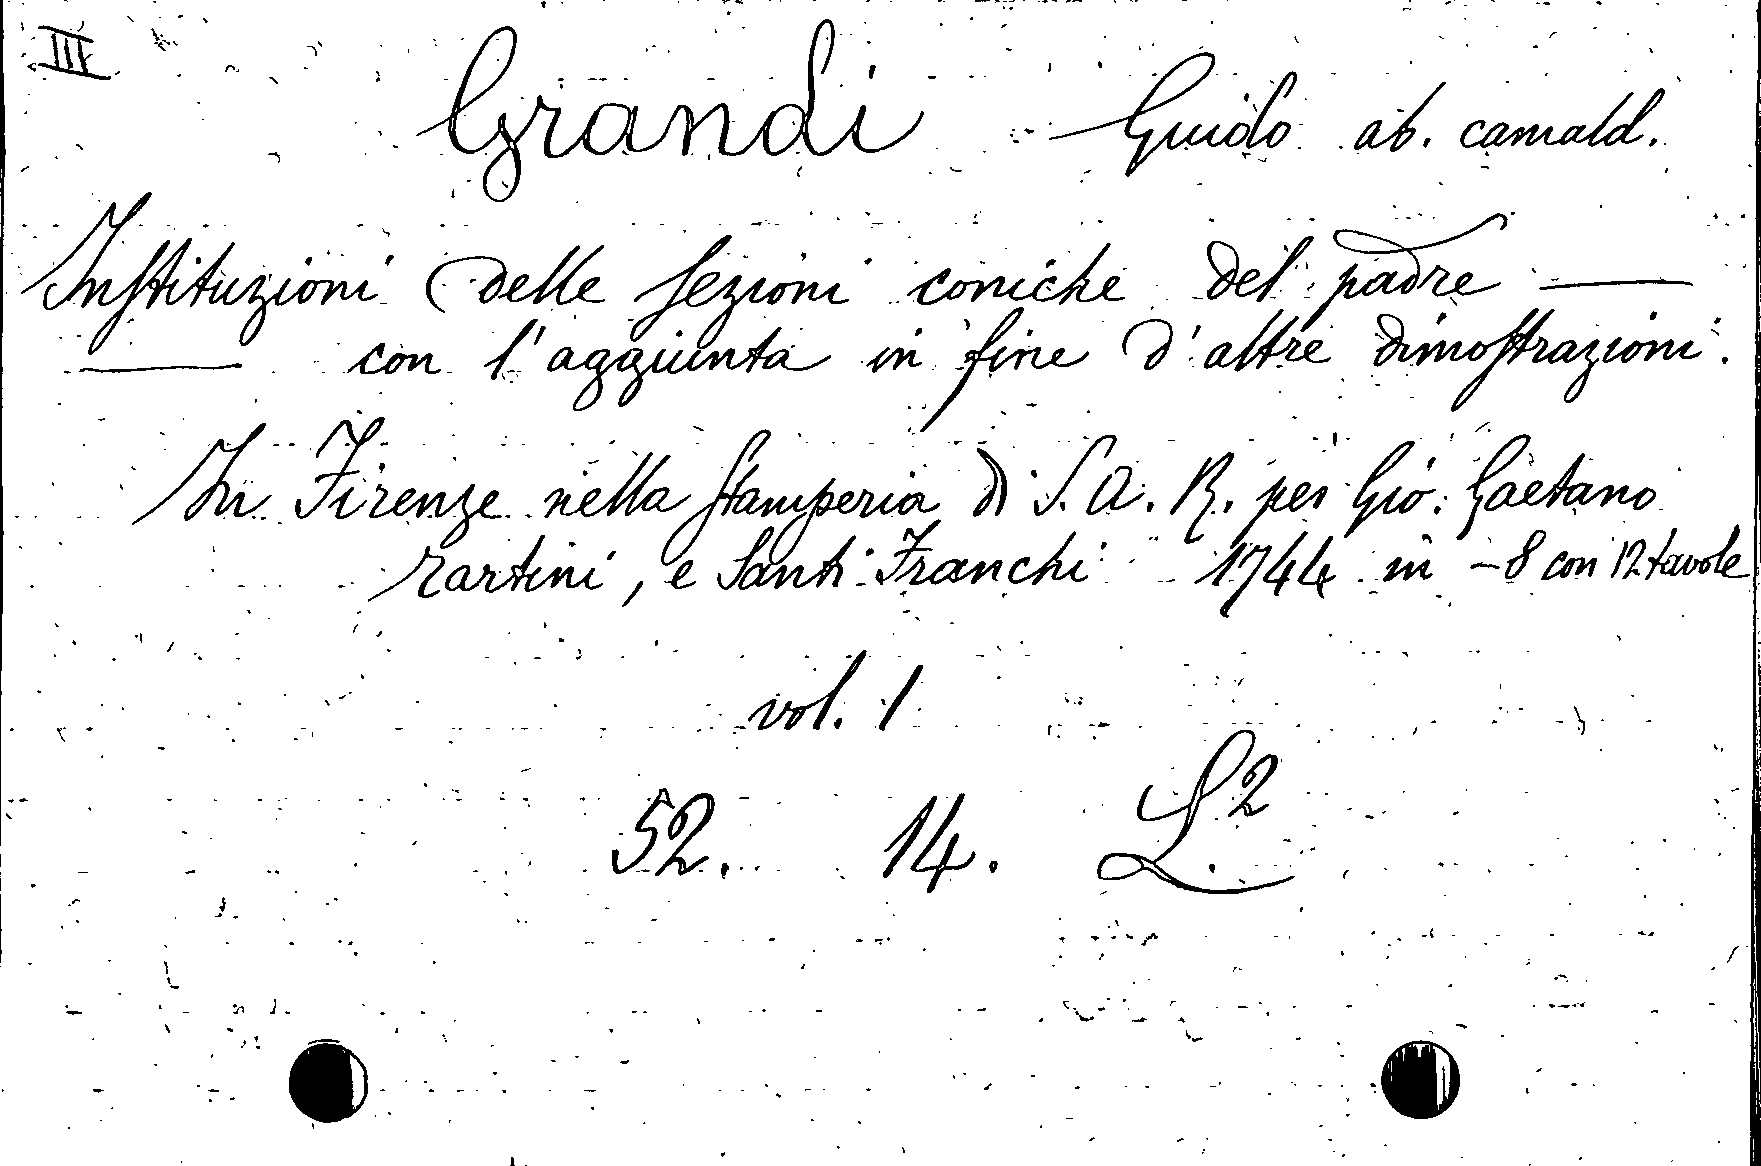 III
Grandi Guido ab. camald.
Instituzioni delle sezioni coniche del padre ——
—— con l'aggiunta in fine d'altre dimostrazioni.
In Firenze nella stamperia di S. A. R. per Gio: Gaetano
Tartini, e Santi Franchi 1744 in -8 con 12 tavole
vol. 1
52. 14. L.2